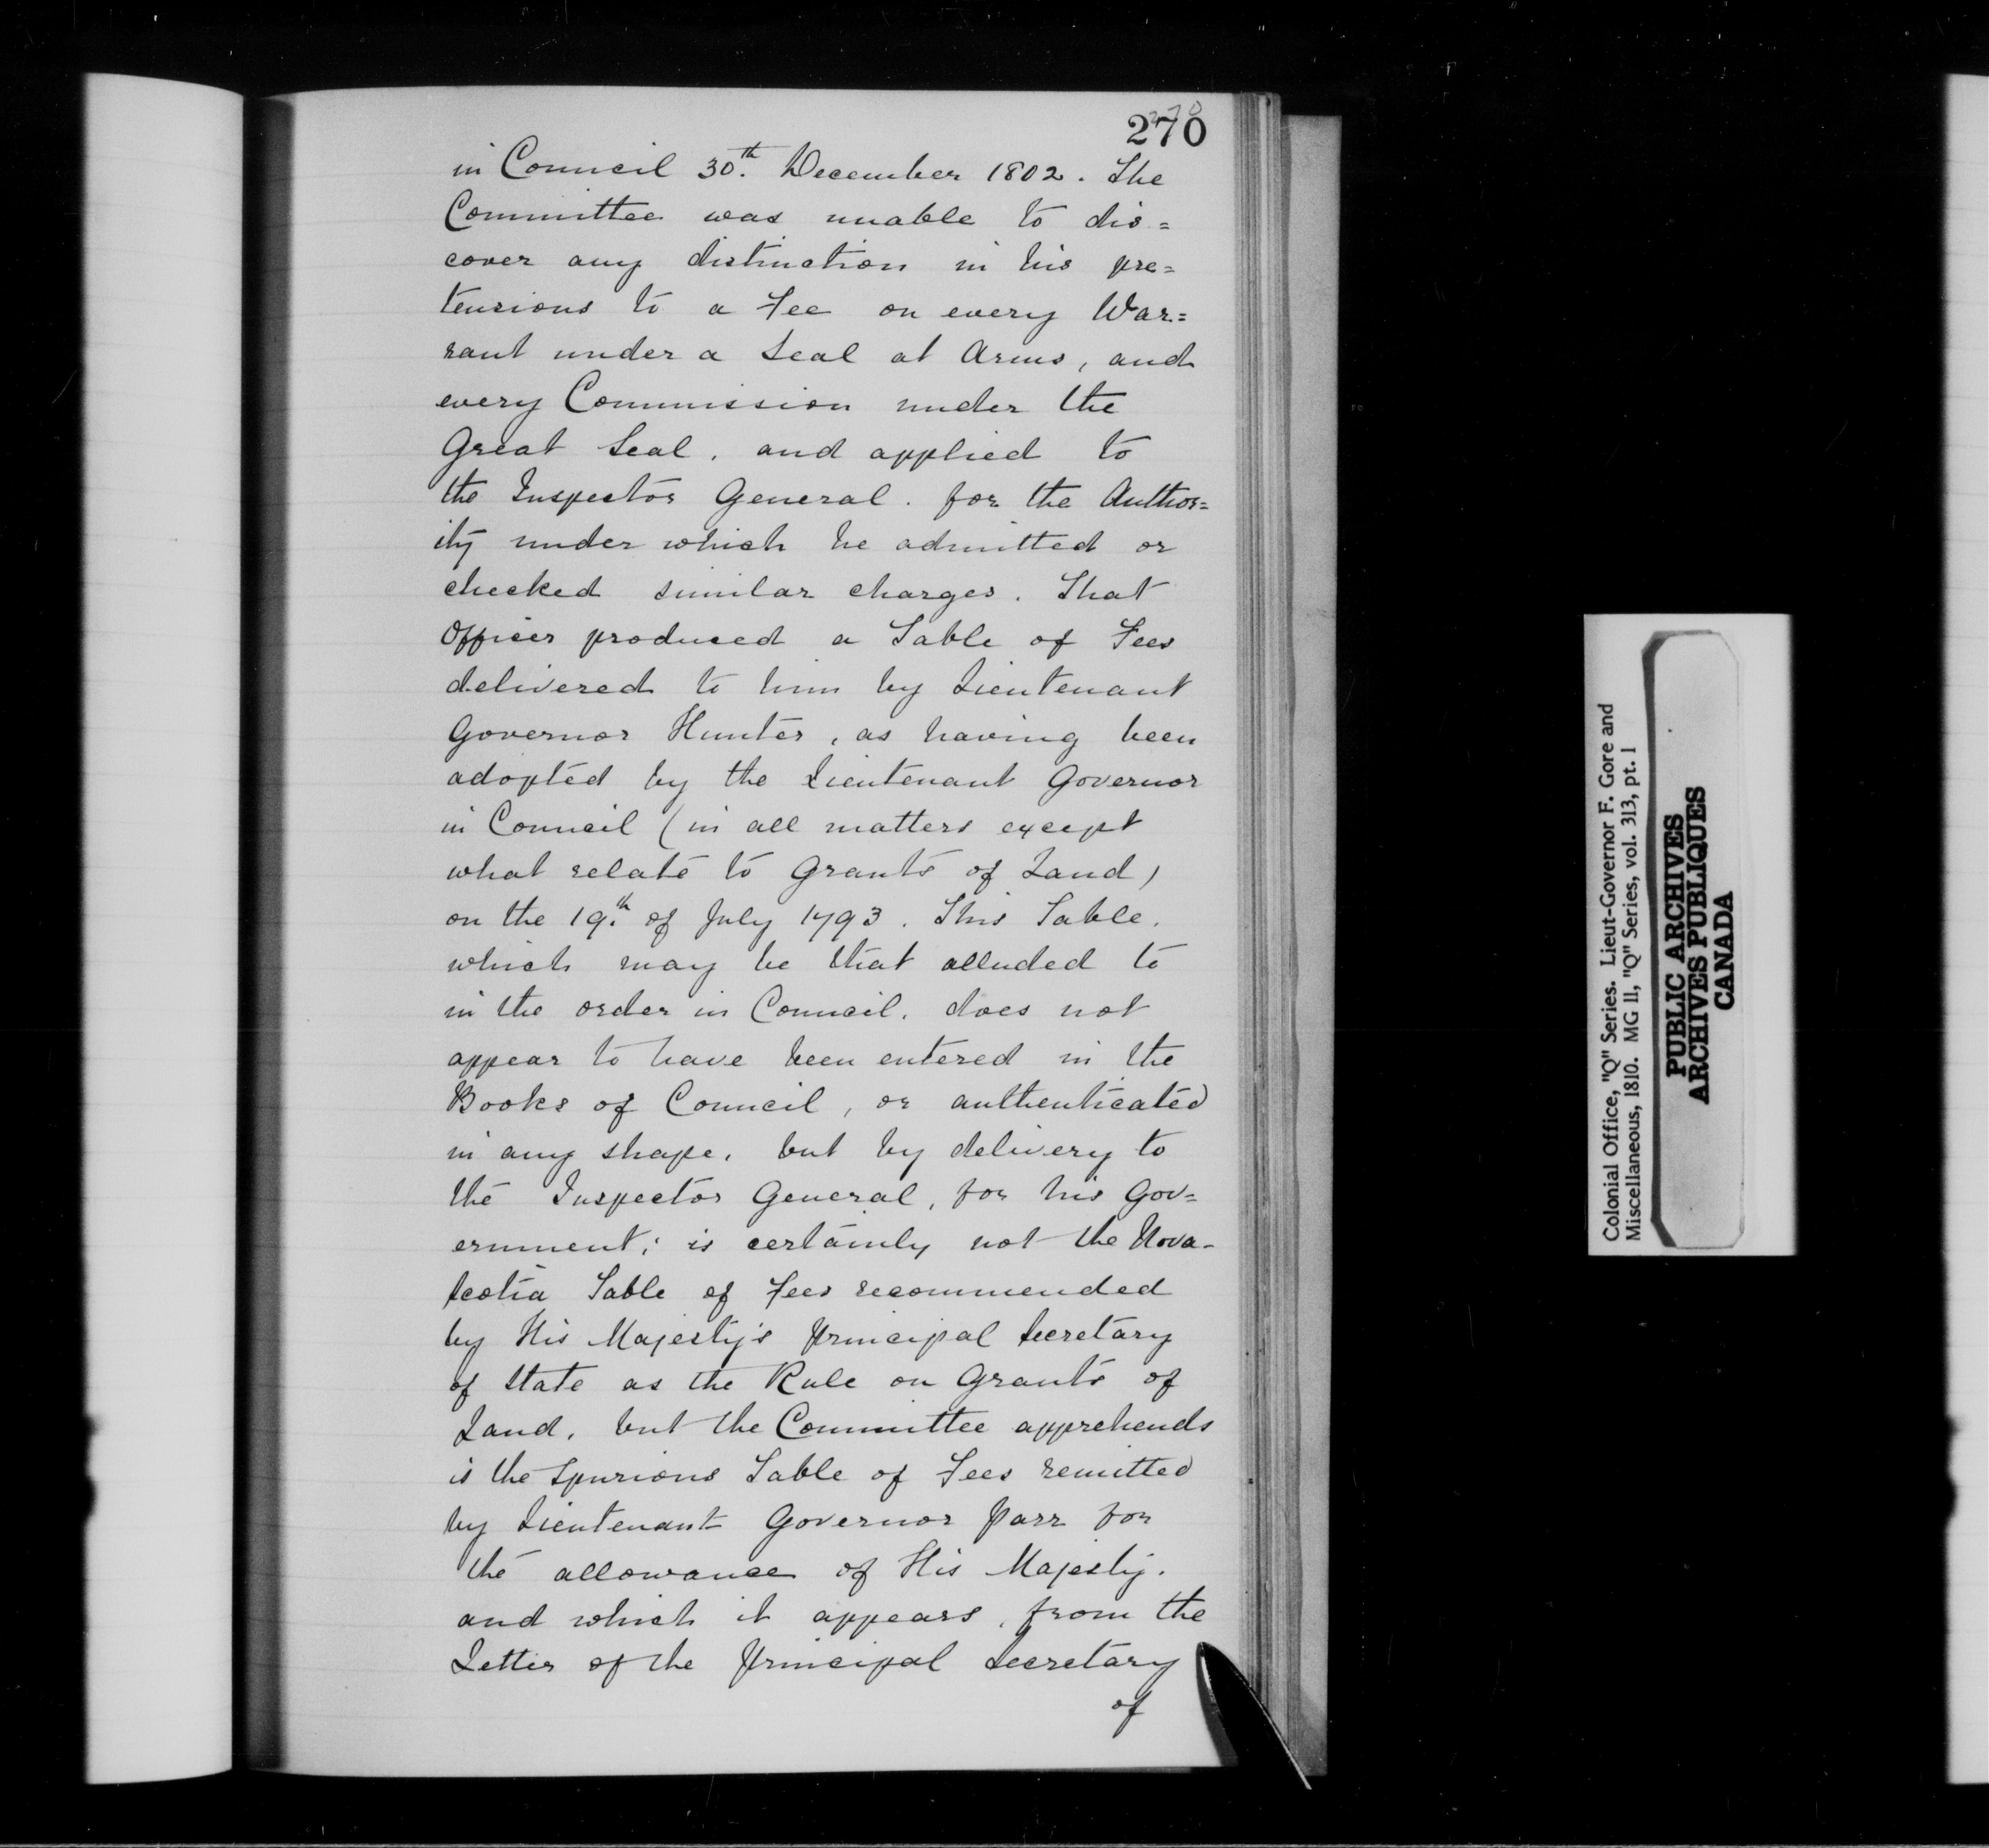 270
270
in Council 30th. December 1802. The
Committee was unable to dis=
cover any distinction in his pre=
tensions to a Fee on every War=
rant under a Seal at Arms, and
every Commission under the
Great Seal, and applied to
the Inspector General. for the Author=
ity under which he admitted or
checked similar charges. That
Officer produced a Table of Fees
delivered to him by Lieutenant
Governor Hunter, as having been
adopted by the Lieutenant Governor
in Council (in all matters except
what relate to Grants of Land)
on the 19th. of July 1793. This Table,
which may be that alluded to
in the order in Council, does not
appear to have been entered in the
Books of Council, or authenticated
in any shape, but by delivery to
the Inspector General, for his Gov=
ernment; is certainly not the Nova-
Scotia Table of Fees recommended
by His Majesty's Principal Secretary
of State as the Rule on Grants of
Land, but the Committee apprehends
is the Spurious Table of Fees remitted
by Lieutenant Governor Parr for
the allowance of His Majesty.
and which it appears, from the
Letter of the Principal Secretary
of
Colonial Office, "Q" Series. Lieut-Governor F. Gore and
Miscellaneous, 1810. MG 11, "Q" Series, vol. 313, pt. 1
PUBLIC ARCHIVES
ARCHIVES PUBLIQUES
CANADA